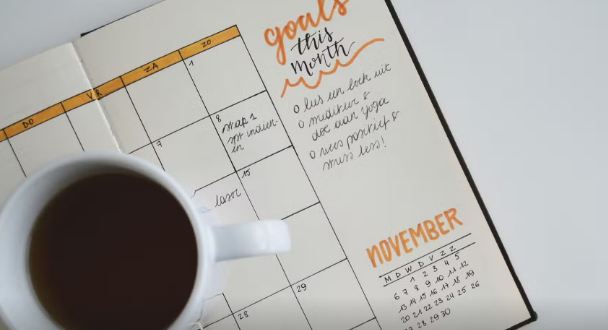 goals
this
month
o lees een boek uit
o mediteer &
doe aan yoga
o wees positief &
stress less!
DO VR ZA ZO
1
7
8
stap 1
indien-
en
15
28
29
NOVEMBER
M D W D V Z Z
1 2 3 4 5
6 7 8 9 10 11 12
13 14 15 16 17 18 19
20 21 22 23 24 25 26
27 28 29 30